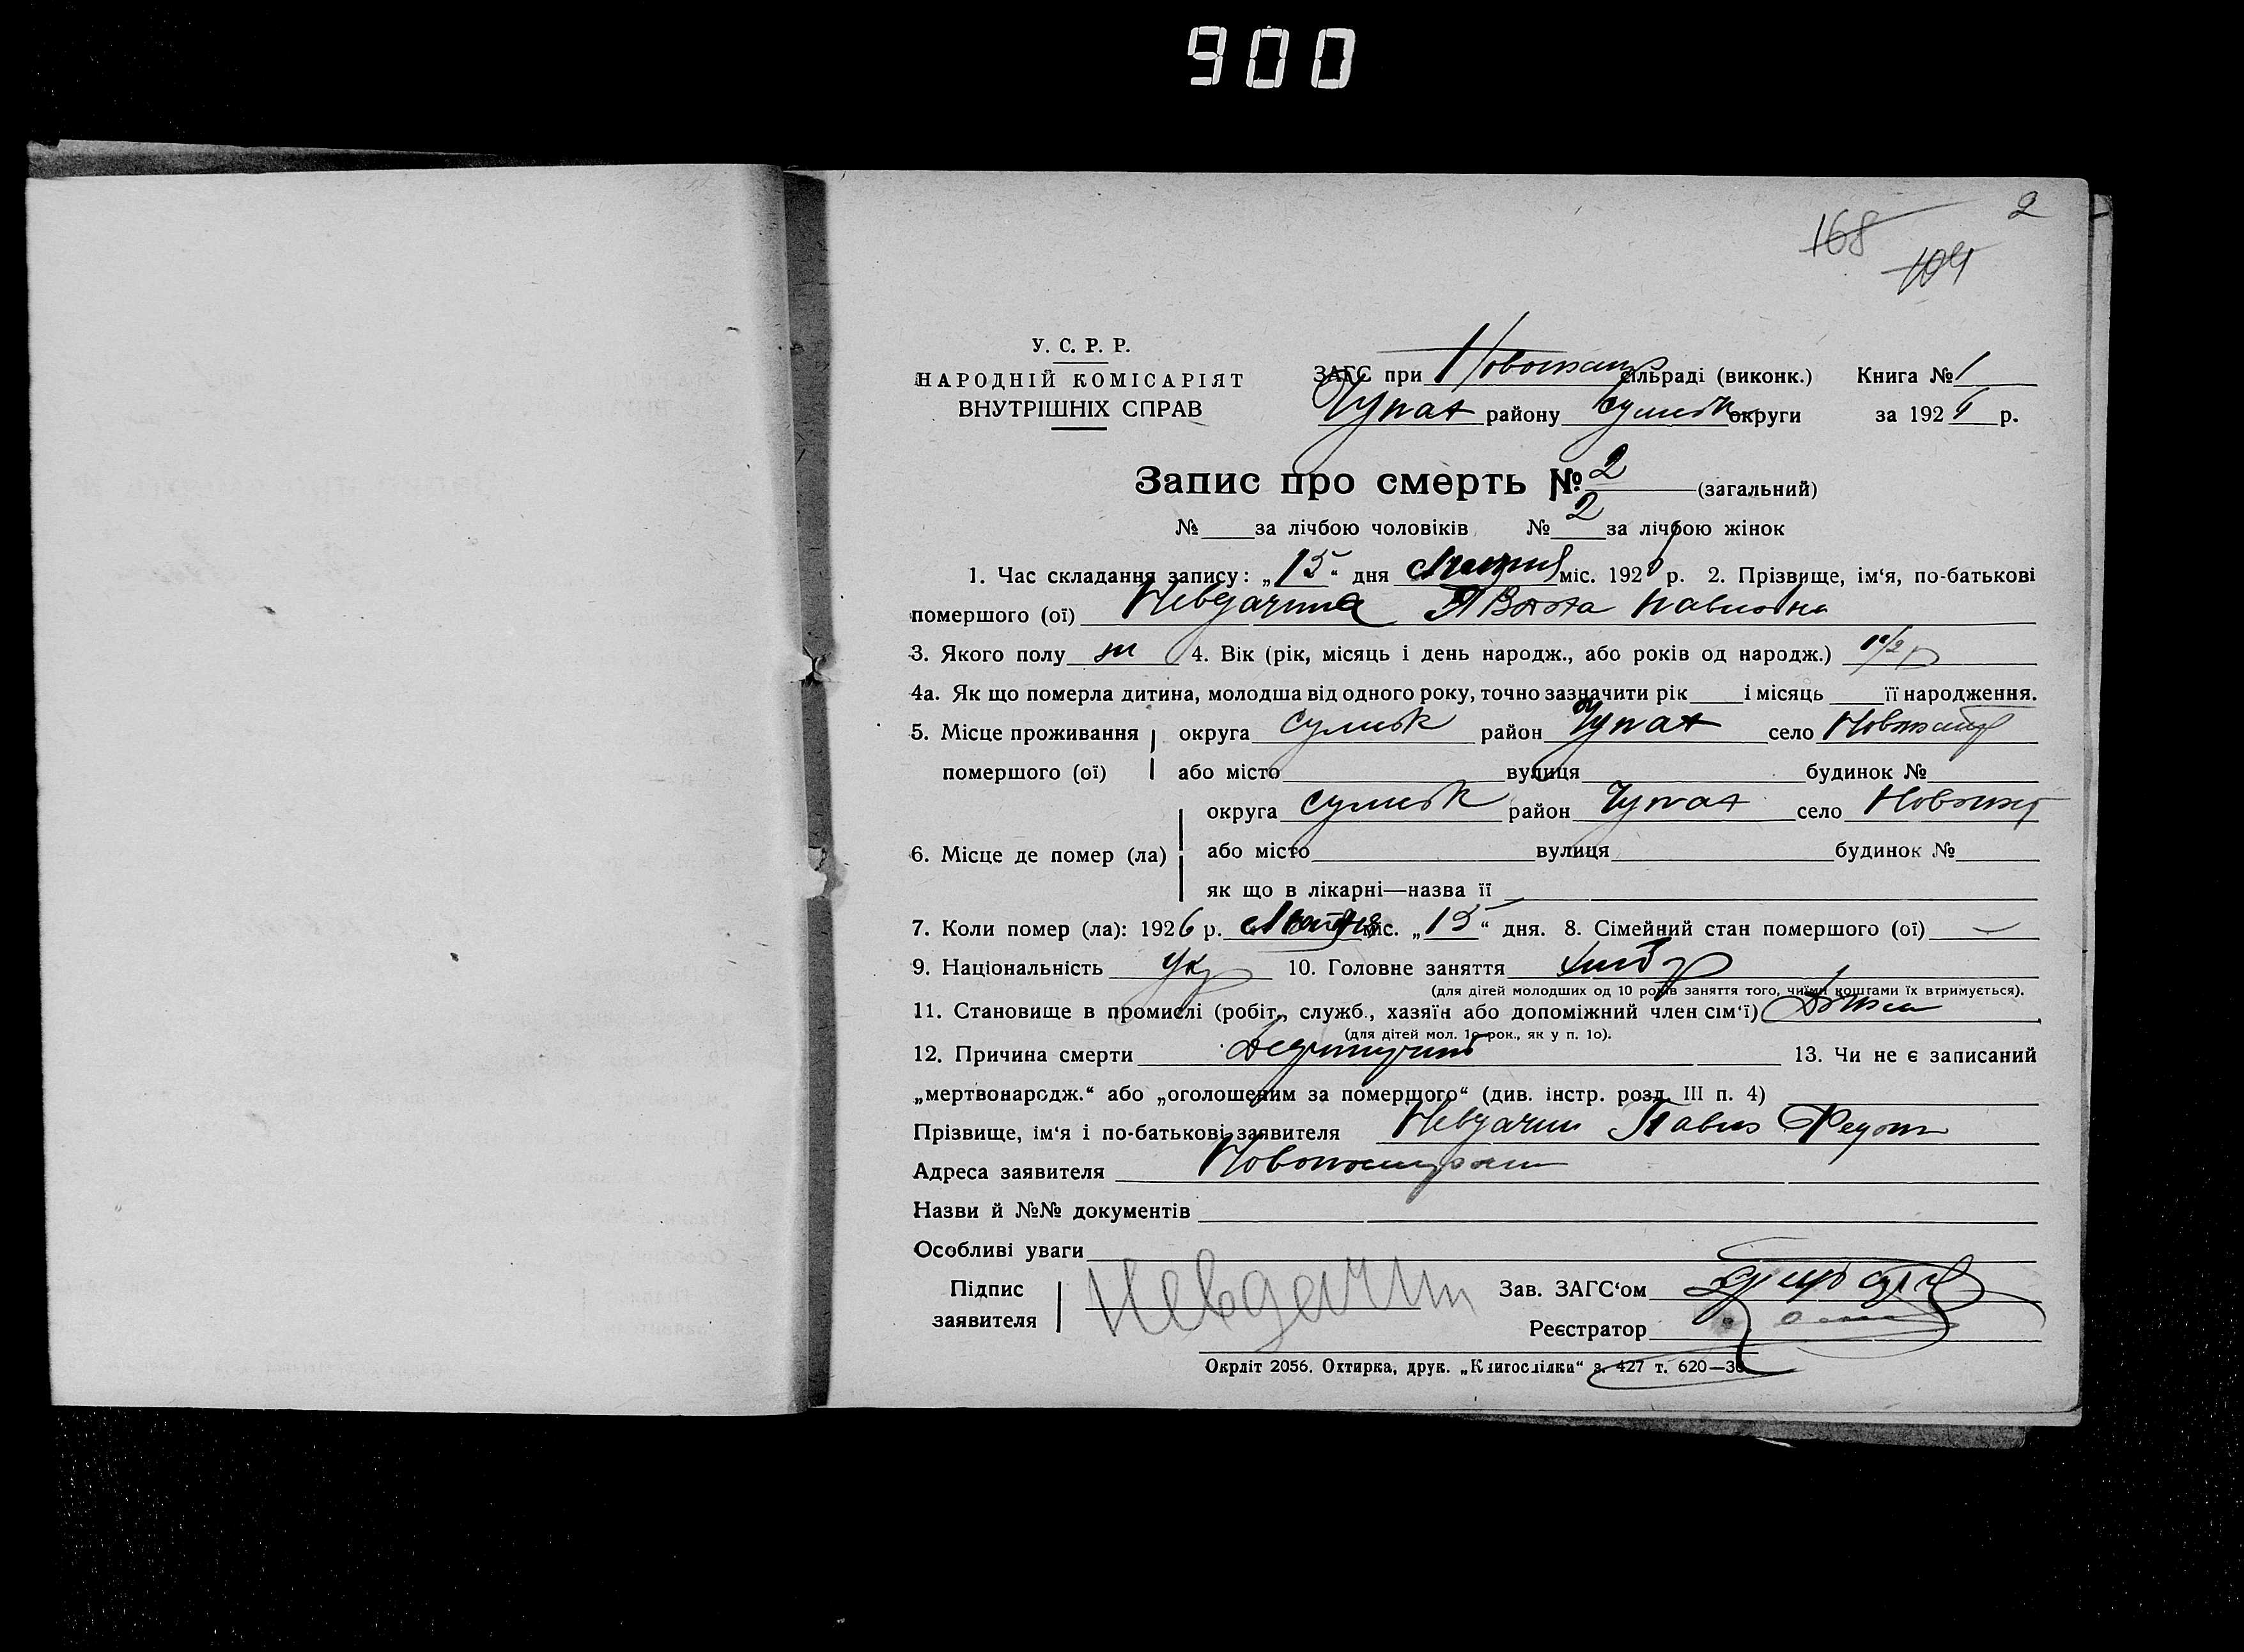 900
2
168
104
У. С. Р. Р.
НАРОДНІЙ КОМІСАРІЯТ
ВНУТРІШНІХ СПРАВ
ЗАГС при сільраді (виконк.) Книга № 1
району Сумськ округи за 1926 р.
Запис про смерть № 2 (загальний)
№ за лічбою чоловіків № 2 за лічбою жінок
1. Час складання запису: „15“ дня міс. 1926 р. 2. Прізвище, ім‘я, по-батькові
помершого (ої) Невдачина Павловна
3. Якого полу ж 4. Вік (рік, місяць і день народж., або років од народж.)
4а. Як що померла дитина, молодша від одного року, точно зазначити рік і місяць її народження.
5. Місце проживання округа Сумськ район село
помершого (ої) або місто вулиця будинок №
округа Сумськ район село
6. Місце де помер (ла) або місто вулиця будинок №
як що в лікарні—назва її
7. Коли помер (ла): 1926 р. міс. „15“ дня. 8. Сімейний стан помершого (ої) —
9. Національність Укр 10. Головне заняття хлібор
(для дітей молодших од 10 років заняття того, чиїми коштами їх втримується).
11. Становище в промислі (робіт., служб., хазяїн або допоміжний член сім‘ї)
(для дітей мол. 10 рок., як у п. 10).
12. Причина смерти 13. Чи не є записаний
„мертвонародж.“ або „оголошеним за померщого“ (див. інстр. розд. III п. 4)
Прізвище, ім‘я і по-батькові заявителя Невдачин Павло Федот
Адреса заявителя
Назви й №№ документів
Особливі уваги
Підпис Невдачин Зав. ЗАГС‘ом
заявителя Реєстратор
Окрліт 2056. Охтирка, друк. „Книгоспілки“ з. 427 т. 620—30